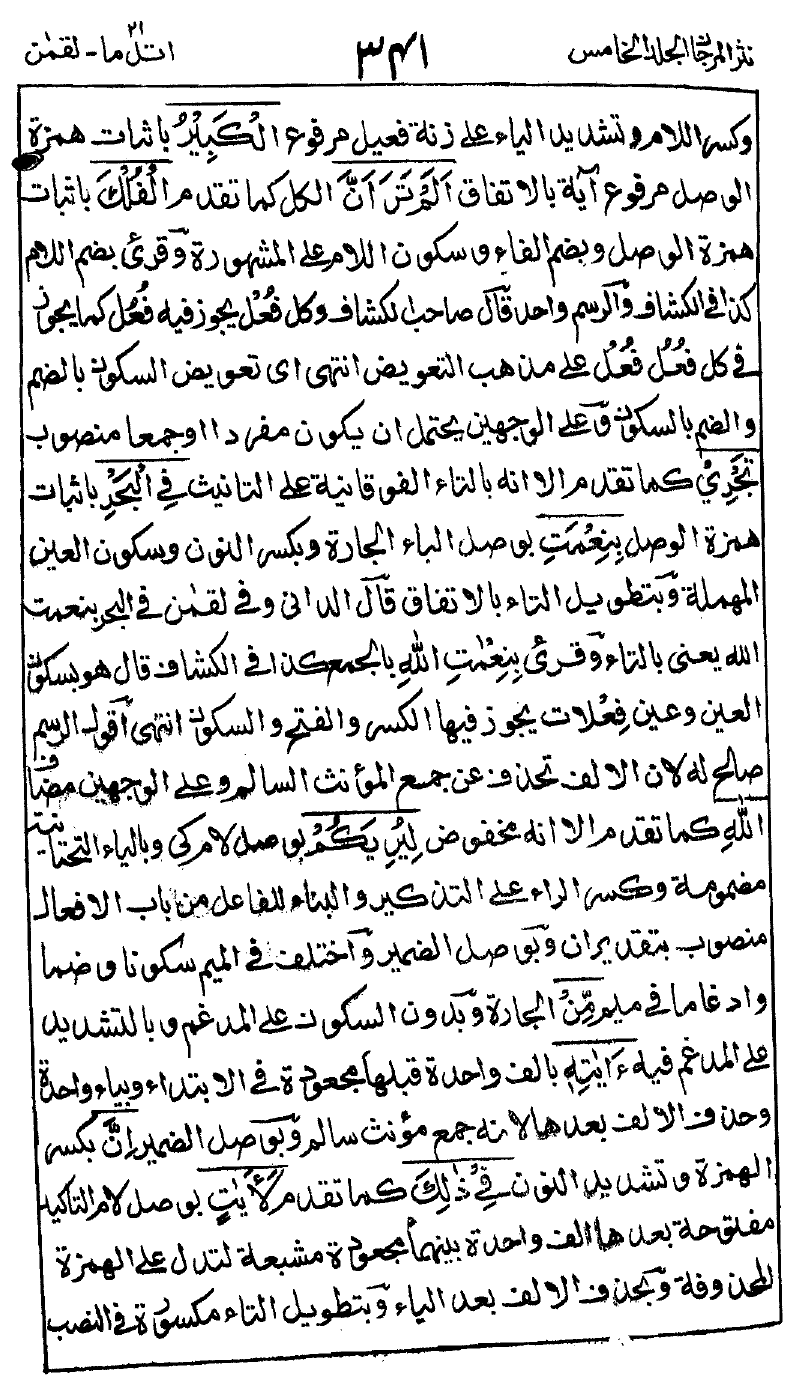 نثر المرجان الجلد الخامس ٣٤١ اتل ما ٢١ - لقمٰن
وكسر اللام وتشديد الياء على زنة فعيل مرفوع الْكَبِيْرُ باثبات همزة
الوصل مرفوع آية بالاتفاق اَلَمْ تَرَ اَنَّ الكل كما تقدم الْفُلْكَ باثبات
همزة الوصل وبضم الفاء وسكون اللام على المشهورة وقرئ بضم اللام
كذا في الكشاف والرسم واحد قال صاحب الكشاف وكل فُعْل يجوز فيه فُعُل كما يجوز
في كل فُعُل فُعْل على مذهب التعويض انتهى اى تعويض السكون بالضم
والضم بالسكون وعلى الوجهين يحتمل ان يكون مفردا اوجمعا منصوب
تَجْرِيْ كما تقدم الا انه بالتاء الفوقانية على التانيث فِي الْبَحْرِ باثبات
همزة الوصل بِنِعْمَتِ بوصل الباء الجارة وبكسر النون وسكون العين
المهملة وبتطويل التاء بالاتفاق قال الدانى وفي لقمٰن في البحر بنعمت
الله يعنى بالتاء وقرئ بِنِعْمٰتِ اللهِ بالجمع كذا في الكشاف قال هو بسكون
العين وعين فِعْلات يجوز فيها الكسر والفتح والسكون انتهى اقول الرسم
صالح له لان الالف تحذف عن جمع المؤنث السالم وعلى الوجهين مضاف
اللهِ كما تقدم الا انه مخفوض لِيُرِيَكُمْ بوصل لام كى وبالياء التحتانية
مضمومة وكسر الراء على التذكير والبناء للفاعل من باب الافعال
منصوب بتقدير ان وبوصل الضمير واختلف في الميم سكونا وضما
وادغاما في ميم مِّنْ الجارة وبدون السكون على المدغم وبالتشديد
على المدغم فيه ءَايٰتِهٖ بالف واحدة قبلها مجعودة في الابتداء وبياء واحدة
وحذف الالف بعدها لانه جمع مؤنث سالم وبوصل الضمير اِنَّ بكسر
الهمزة وتشديد النون فِيْ ذٰلِكَ كما تقدم لَاٰيٰتٍ بوصل لام التاكيد
مفتوحة بعدها الف واحدة بينهما مجعودة مشبعة لتدل على الهمزة
المحذوفة وبحذف الالف بعد الياء وبتطويل التاء مكسورة في النصب